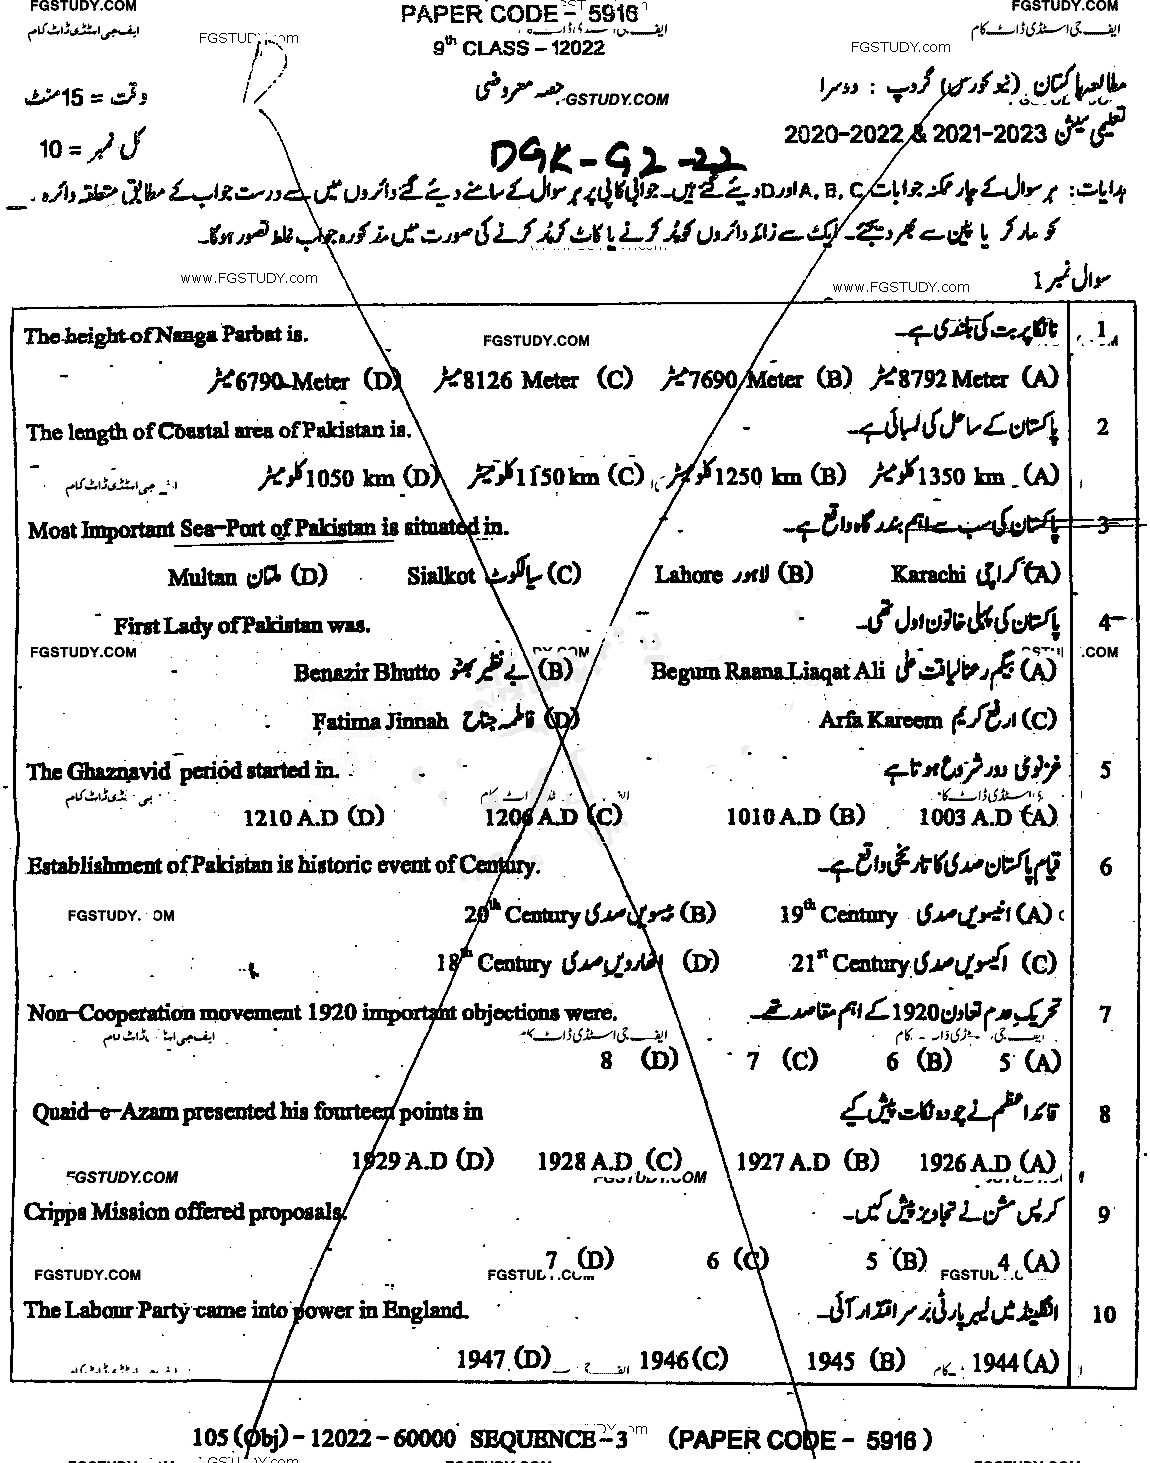 FGSTUDY.COM PAPER CODE – 5916 FGSTUDY.COM
ایف جی اسٹڈی ڈاٹ کام ایف جی اسٹڈی ڈاٹ کام
9th CLASS – 12022
FGSTUDY.com
مطالعہ پاکستان (نیو کورس) گروپ : دوسرا حصہ معروضی وقت = 15 منٹ
GSTUDY.COM
تعلیمی سیشن 2021-2023 & 2020-2022 کل نمبر = 10
DGK-G2-22
ہدایات: ہر سوال کے چار ممکنہ جوابات A, B, C اور D دیئے گئے ہیں۔ جوابی کاپی پر ہر سوال کے سامنے دیئے گئے دائروں میں سے درست جواب کے مطابق متعلقہ دائرہ
کو مارکر یا پین سے بھر دیجئے۔ ایک سے زائد دائروں کو پُر کرنے یا کاٹ کر پُر کرنے کی صورت میں مذکورہ جواب غلط تصور ہوگا۔
www.FGSTUDY.com www.FGSTUDY.com
سوال نمبر 1
1 نانگا پربت کی بلندی ہے۔ The height of Nanga Parbat is.
FGSTUDY.COM
(A) 8792 Meter میٹر (B) 7690 Meter میٹر (C) 8126 Meter میٹر (D) 6790 Meter میٹر
2 پاکستان کے ساحل کی لمبائی ہے۔ The length of Coastal area of Pakistan is.
(A) 1350 km کلومیٹر (B) 1250 km کلومیٹر (C) 1150 km کلومیٹر (D) 1050 km کلومیٹر
3 پاکستان کی سب سے اہم بندرگاہ واقع ہے۔ Most Important Sea-Port of Pakistan is situated in.
(A) کراچی Karachi (B) لاہور Lahore (C) سیالکوٹ Sialkot (D) ملتان Multan
4 پاکستان کی پہلی خاتون اول تھی۔ First Lady of Pakistan was.
FGSTUDY.COM
(A) بیگم رعنا لیاقت علی Begum Raana Liaqat Ali (B) بے نظیر بھٹو Benazir Bhutto
(C) ارفع کریم Arfa Kareem (D) فاطمہ جناح Fatima Jinnah
5 غزنوی دور شروع ہوتا ہے The Ghaznavid period started in.
(A) 1003 A.D (B) 1010 A.D (C) 1206 A.D (D) 1210 A.D
6 قیام پاکستان صدی کا تاریخی واقع ہے۔ Establishment of Pakistan is historic event of Century.
(A) انیسویں صدی 19th Century (B) بیسویں صدی 20th Century
(C) اکیسویں صدی 21st Century (D) اٹھارویں صدی 18th Century
7 تحریک عدم تعاون 1920 کے اہم مقاصد تھے۔ Non-Cooperation movement 1920 important objections were.
ایف جی اسٹڈی ڈاٹ کام
(A) 5 (B) 6 (C) 7 (D) 8
8 قائداعظم نے چودہ نکات پیش کیے Quaid-e-Azam presented his fourteen points in
(A) 1926 A.D (B) 1927 A.D (C) 1928 A.D (D) 1929 A.D
9 کرپس مشن نے تجاویز پیش کیں۔ Cripps Mission offered proposals.
(A) 4 (B) 5 (C) 6 (D) 7
FGSTUDY.COM
10 انگلینڈ میں لیبر پارٹی برسر اقتدار آئی۔ The Labour Party came into power in England.
(A) 1944 (B) 1945 (C) 1946 (D) 1947
105 (Obj) – 12022 – 60000 SEQUENCE – 3 (PAPER CODE – 5916 )